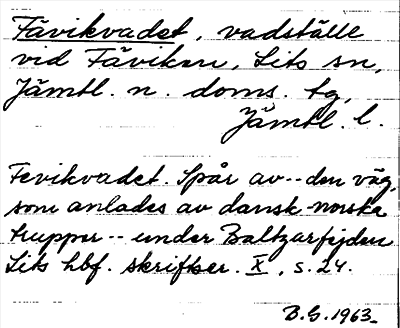 Fävikvadet, vadställe
vid Fäviken, Lits sn,
Jämtl. n. doms. tg,
Jämtl. l.
Fevikvadet. Spår av -- den väg,
som anlades av dansk-norska
trupper -- under Baltzarfejden
Lits hbf. skrifter. X, s. 24.
B.G. 1963.